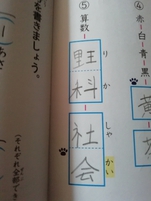 ④赤-白-青-黒
⑤算数-
理科-社会
りか
しゃかい
を書きましょう。
(それぞれ全部でき